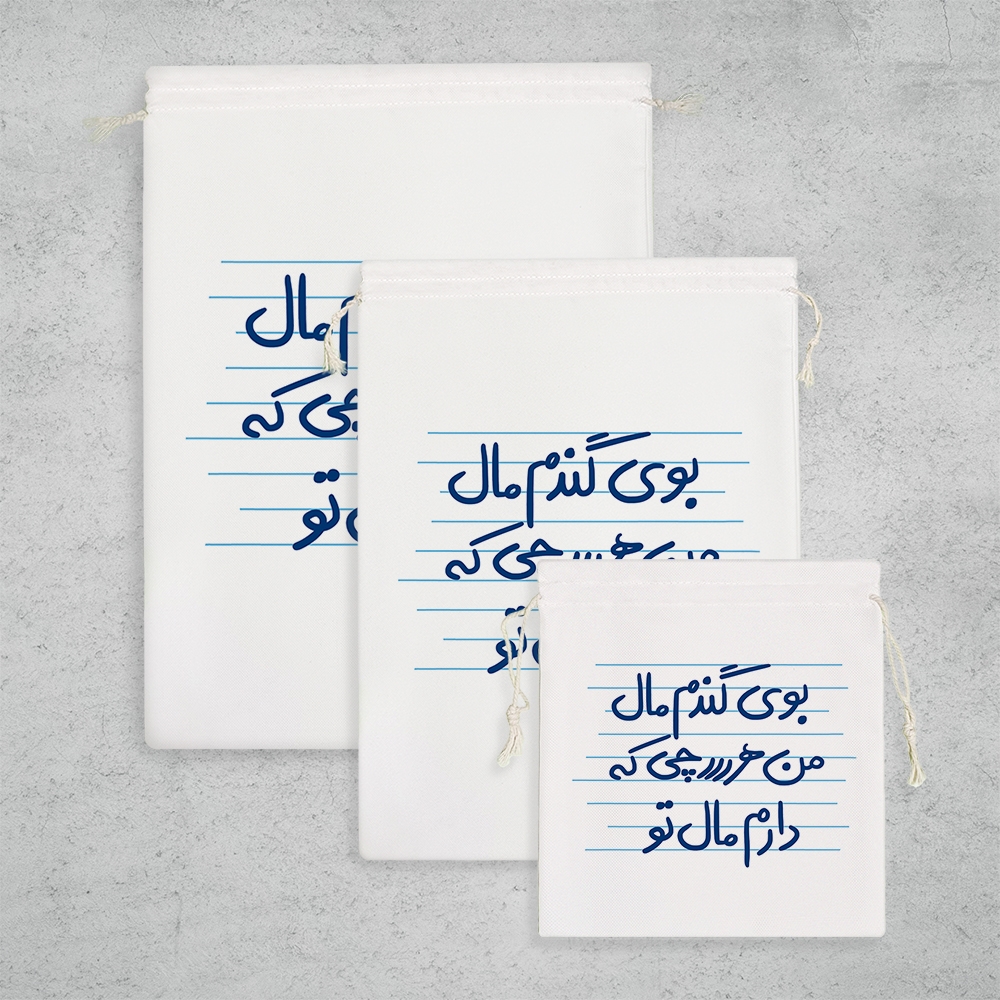 مال
چی که
تو
بوی گندم مال
من هررررچی که
تو
بوی گندم مال
من هررررچی که
دارم مال تو